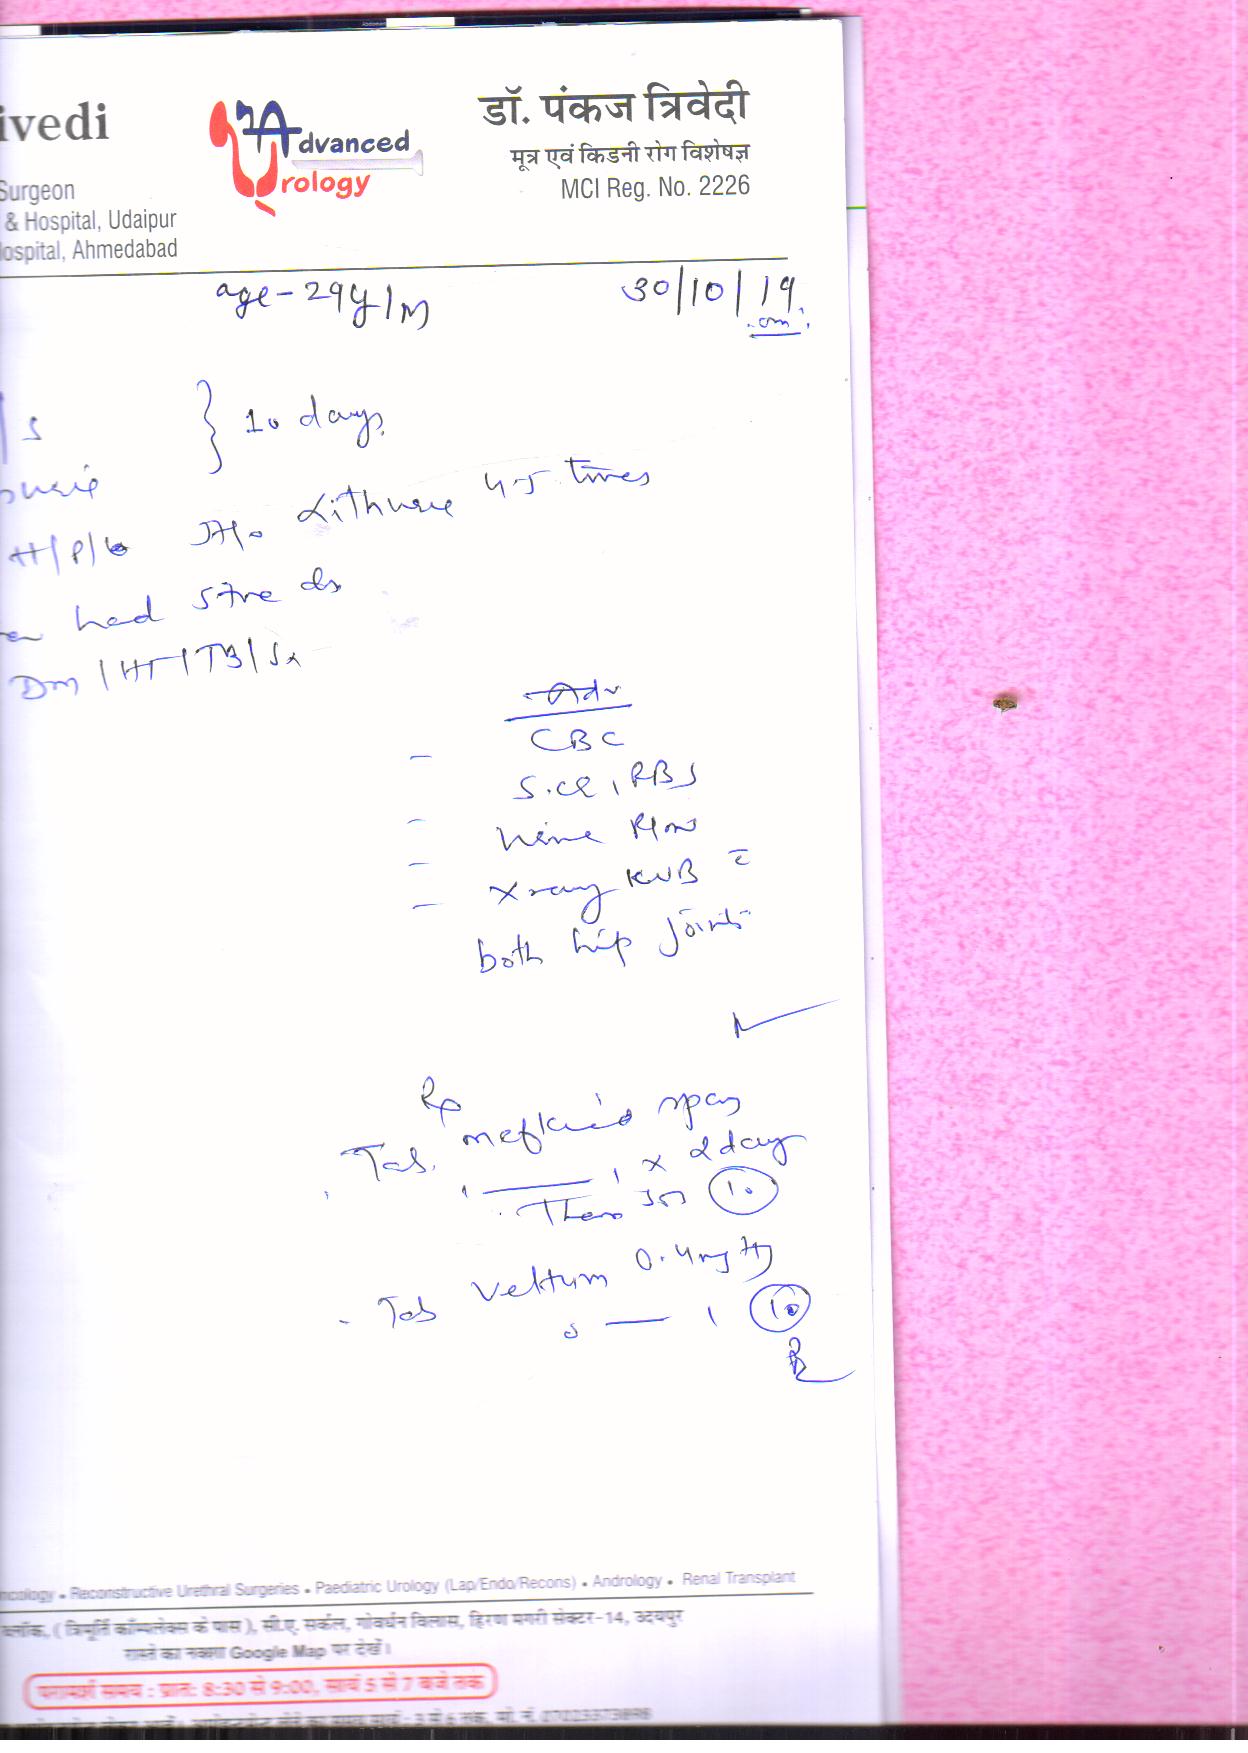 ivedi
Advanced
Urology
डॉ. पंकज त्रिवेदी
मूत्र एवं किडनी रोग विशेषज्ञ
MCI Reg. No. 2226
Surgeon
& Hospital, Udaipur
Hospital, Ahmedabad
age - 29y/M
30/10/19
/s
} 10 days
H/P/
H/o Lithurie 4-5 times
had stone ds
Dm / HT / TB / Sx
Adv
- CBC
S.cr, RBS
- Urine R/m
- X ray KUB c̄
both hip joints
Rp
Tab. mefkind spas
1 — 1 x 2 day
Then 10
- Tab Veltum 0.4mg
0 — 1 10
ncology • Reconstructive Urethral Surgeries • Paediatric Urology (Lap/Endo/Recons) • Andrology • Renal Transplant
ब्लॉक, (त्रिमूर्ति कॉम्पलेक्स के पास), सी.ए. सर्कल, गोवर्धन विलास, हिरण मगरी सेक्टर-14, उदयपुर
रास्ते का नक्शा Google Map पर देखें।
परामर्श समय : प्रात: 8:30 से 9:00, सायं 5 से 7 बजे तक